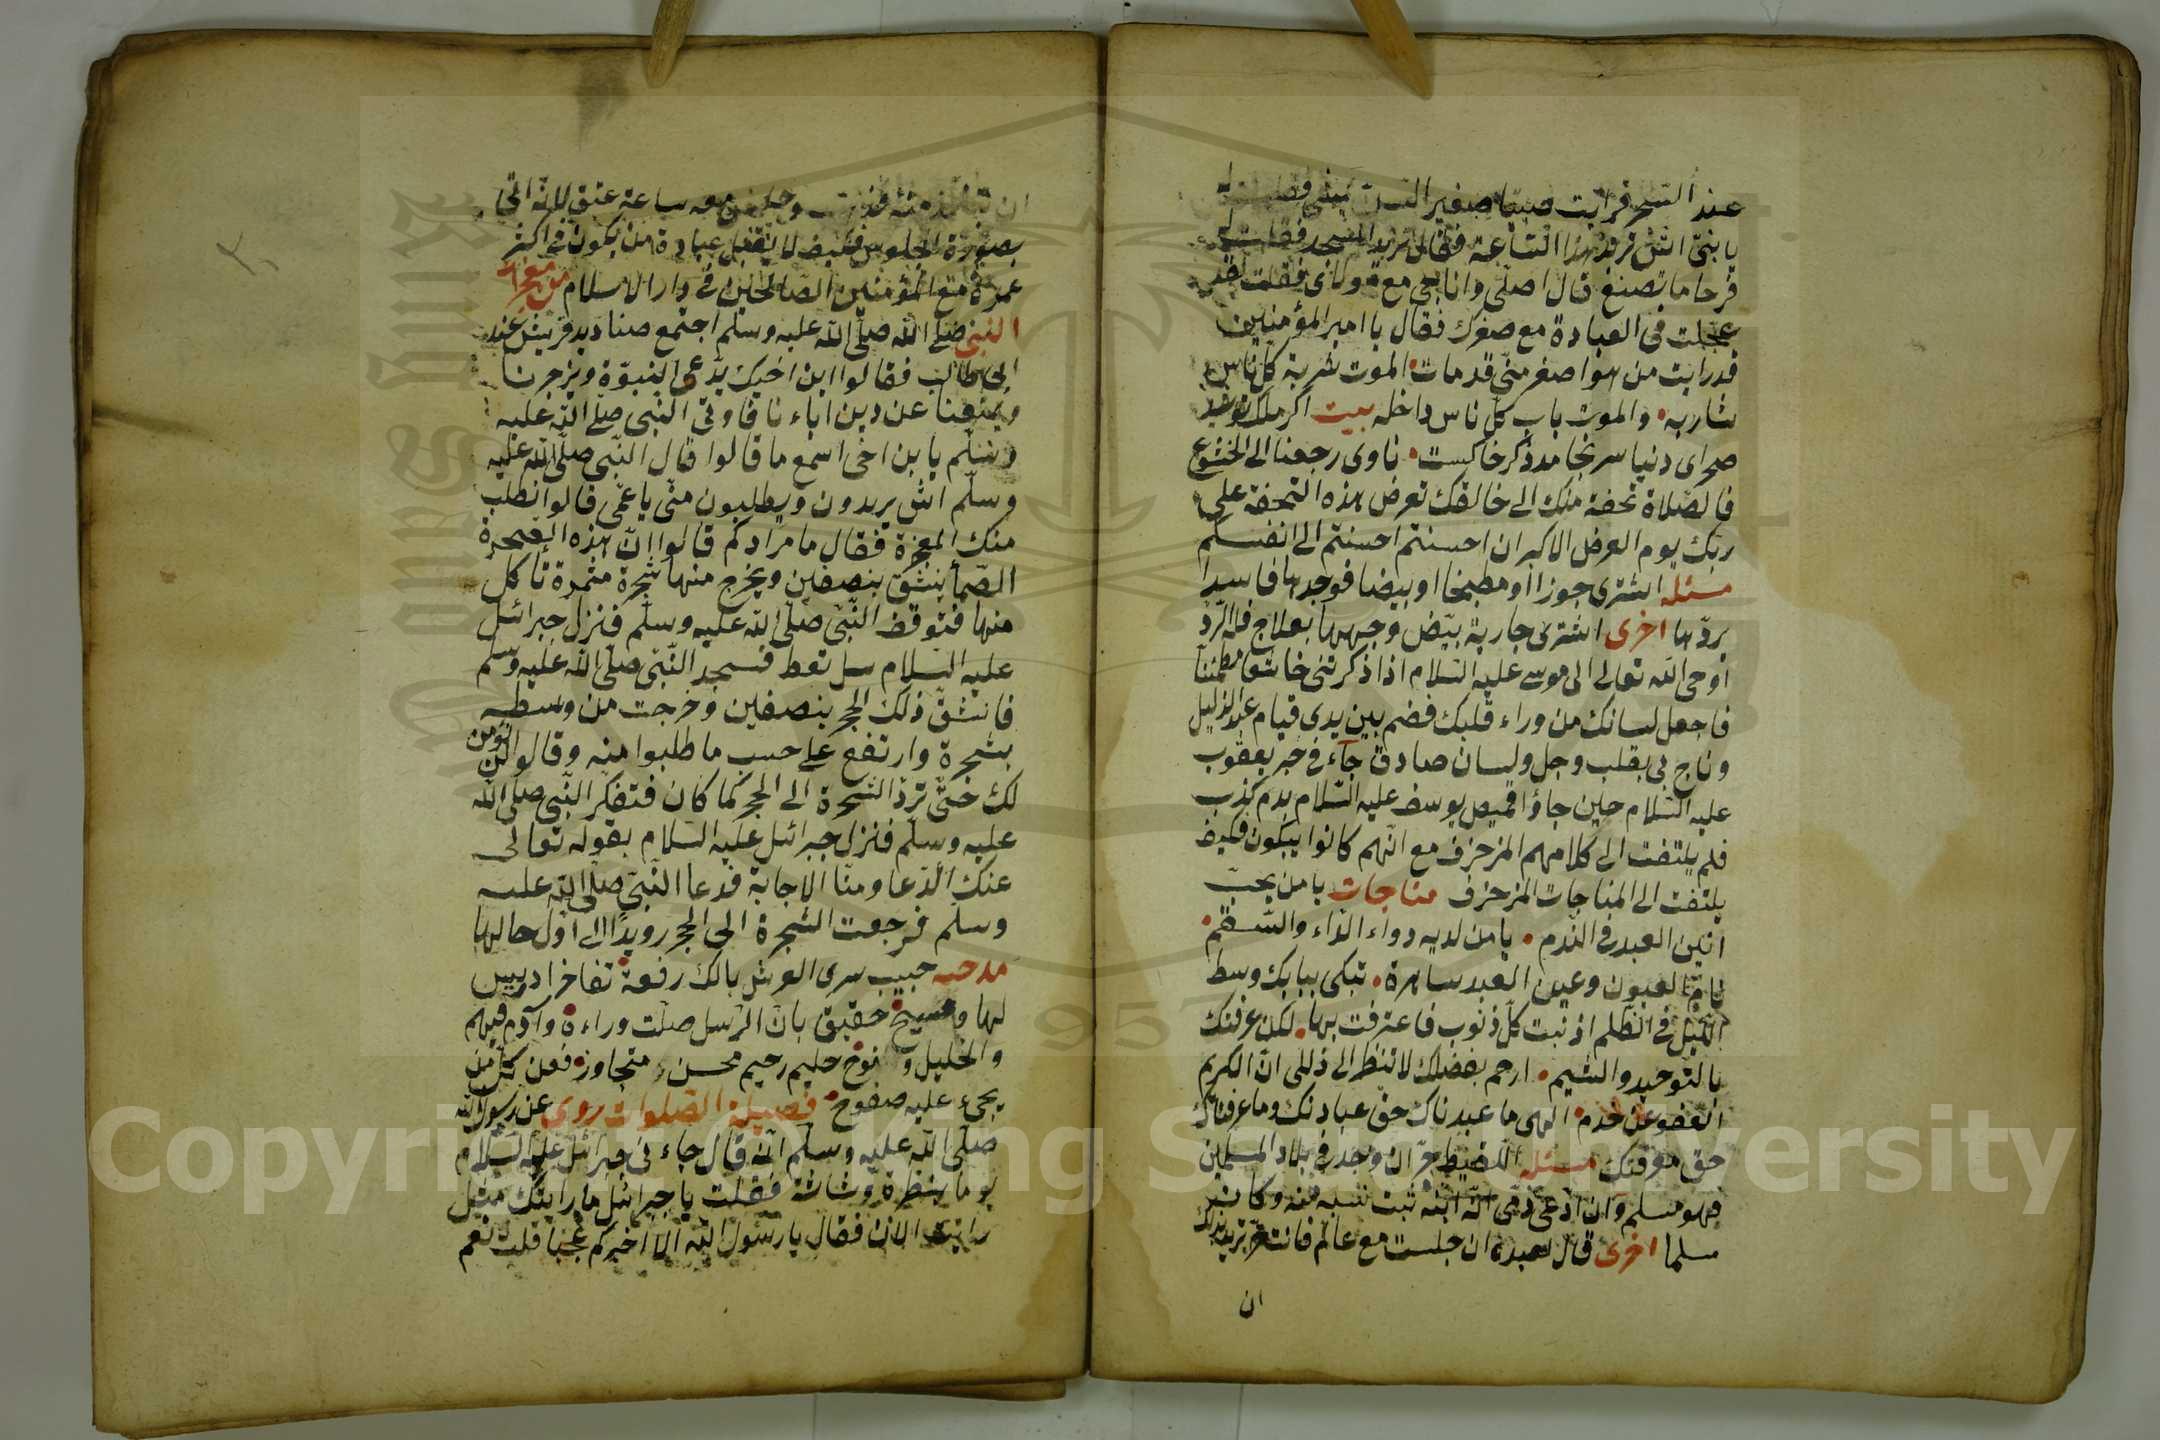 عند السحر فرايت صبيا صغير السن يمشى فقلت له
يا بنى اين تريد هذا الساعة فقال تريد المسجد فقلت له
فرحا ما تصنع قال اصلى واناجى مع مولاى فقلت لقد
عجلت فى العبادة مع صغرك فقال يا امير المؤمنين
قد رايت من هو اصغر منى قد مات الموت شربة كل ناس
شاربه والموت باب كل ناس داخله بيت اكر ملك تو شد
صحراى دنيا سرنجامد ذكر خاكيست ناوى رجعنا الى الخشوع
فالصلاة تحفة منك الى خالقك تعرض هذه التحفة على
ربك يوم العرض الاكبر ان احسنتم احسنتم الى انفسكم
مسئله اشترى جوزا او مطبخا او بيضا فوجدها فاسدا
يردها اخرى اشترى جارية بيض وجهها بعلاج فله الرد
اوحى الله تعالى الى موسى عليه السلام اذا ذكرتنى خاشعا مطمئنا
فاجعل لسانك من وراء قلبك فضم بين يدى قيام عبد الذليل
وناج بى بقلب وجل ولسان صادق جاء فى خبر يعقوب
عليه السلام حين جاؤا قميص يوسف عليه السلام بدم كذب
فلم يلتفت الى كلامهم المزخرف مع انهم كانوا يبكون فكيف
يلتفت الى المناجات المزخرف مناجات يا من يحب
انين العبد فى الندم يا من لديه دواء الداء والسقم
نام العيون وعين العبد ساهرة تبكى ببابك وسط
الليل فى الظلم اذنبت كل ذنوب فاعترفت بها لكن عرفتك
بالتوحيد والشيم ارحم بفضلك لا تنظر الى ذللى ان الكريم
العفو عن خدم الهى ما عبدناك حق عبادتك وما عرفناك
حق معرفتك مسئله اللقيط حر ان وجد فى بلاد المسلمين
فهو مسلم وان ادعى ذمى انه ابنه ثبت نسبه منه وكان
مسلما اخرى قال لعبده ان جلست مع عالم فانت حر يريد بذلك
ان
ان تعلم منه فذهب وجلس معه ساعة عتق لانه اتى
بصورة الجلوس فكيف لا يقبل عبادة من يكون فى اكثر
عمره مع المؤمنين الصالحين فى دار الاسلام من معجزات
النبى صلى الله صلى الله عليه وسلم اجتمع صناديد قريش عند
ابى طالب فقالوا ابن اخيك يدعى النبوة ويزجرنا
ويمنعنا عن دين اباءنا فاوتى النبى صلى الله عليه
وسلم يا بن اخى اسمع ما قالوا قال النبى صلى الله عليه
وسلم اش يريدون ويطلبون منى يا عمى قالوا نطلب
منك المعجزة فقال ما مرادكم قالوا ان هذه الصخرة
الصما ينشق بنصفين ويخرج منها شجرة مثمرة ناكل
منها فتوقف النبى صلى الله عليه وسلم فنزل جبرائيل
عليه السلام سل تعط فسجد النبى صلى الله عليه وسلم
فانشق ذلك الحجر بنصفين وخرجت من وسطه
شجرة وارتفع على حسب ما طلبوا منه وقالوا لن نؤمن
لك حتى ترد الشجرة الى الحجر كما كان فتفكر النبى صلى الله
عليه وسلم فنزل جبرائيل عليه السلام بقوله تعالى
عنك الدعا ومنا الاجابة فدعا النبى صلى الله عليه
وسلم فرجعت الشجرة الى الحجر رويدا الى اول حالها
مدحيه حبيب سرى العرش بالك رفعة تفاخر ادريس
لها ومسيح حقيق بان الرسل صلت وراءه وآدم فيهم
والخليل و نوح حليم رحيم محسن متجاوز فعن كل من
يجىء عليه صفوح فضيلة الصلوات روى عن رسول الله
صلى الله عليه وسلم انه قال جاءنى جبرائيل عليه السلام
يوما بنظرة وشاشة فقلت يا جبرائيل ما رايتك مثل
رايتك الان فقال يا رسول الله الا اخبركم عجبا قلت نعم